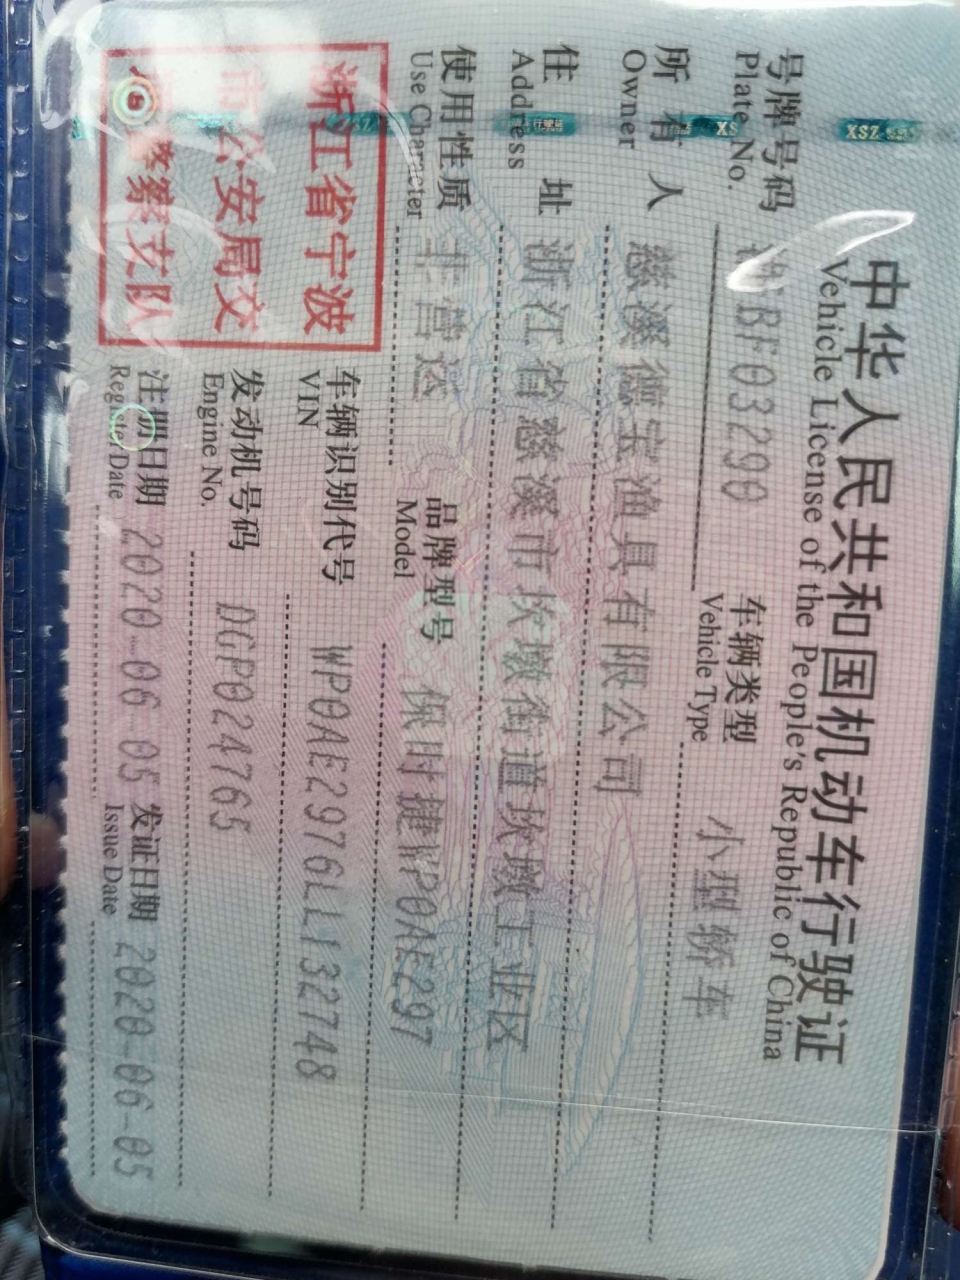 中华人民共和国机动车行驶证
Vehicle License of the People's Republic of China
号牌号码 BF03290 车辆类型 小型轿车
Plate No. Vehicle Type
所有人 慈溪德宝渔具有限公司
Owner
住址 浙江省慈溪市坎墩街道坎墩工业区
Address
使用性质 非营运 品牌型号 保时捷WP0AE297
Use Character Model
车辆识别代号 WP0AE2976LL132748
VIN
发动机号码 DGP024765
Engine No.
注册日期 2020-06-05 发证日期 2020-06-05
Register Date Issue Date
浙江省宁波
市公安局交
警察支队
XSZ